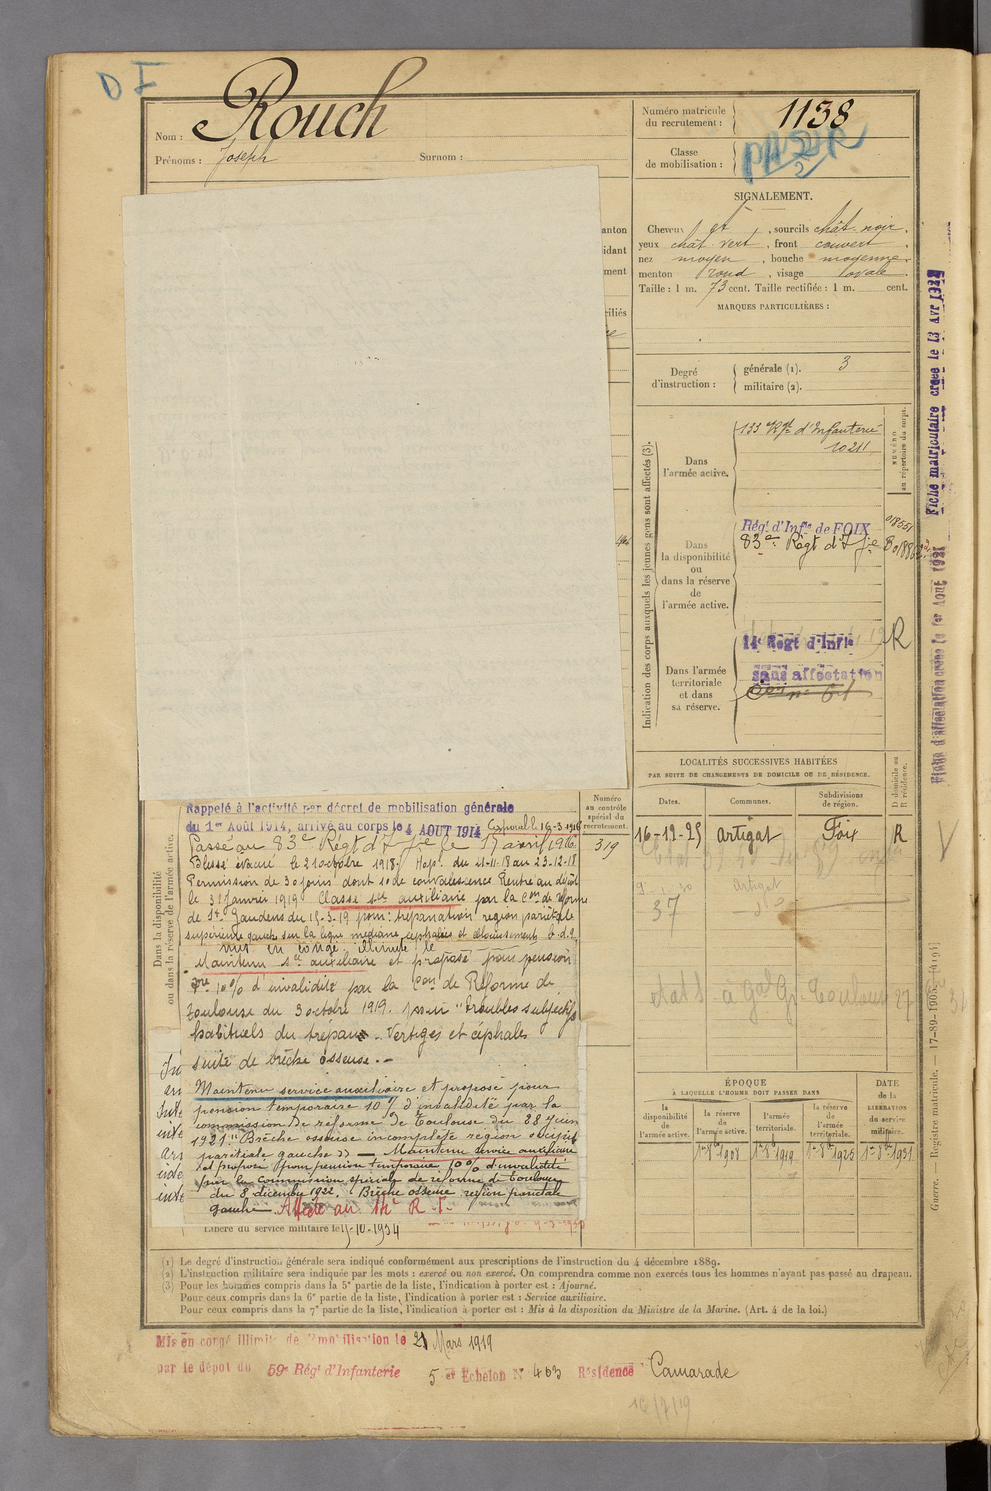 DI
Nom : Rouch
Prénoms : Joseph Surnom :
Numéro matricule du recrutement : 1138
Classe de mobilisation :
SIGNALEMENT.
Cheveux ct , sourcils chât noir .
yeux chât vert , front couvert ,
nez moyen , bouche moyenne
menton rond , visage ovale .
Taille : 1 m. 73 cent. Taille rectifiée : 1 m. cent.
MARQUES PARTICULIÈRES :
Degré d'instruction :
générale (1). 3
militaire (2).
Indication des corps auxquels les jeunes gens sont affectés (3).
NUMÉRO au répertoire du corps.
Dans l'armée active.
133 Rgt d'Infanterie
10211
Dans la disponibilité ou dans la réserve de l'armée active.
Régt d'Infie de FOIX
83e Régt d'Ife
Dans l'armée territoriale et dans sa réserve.
14e Regt d'Infie
R
sans affectation
LOCALITÉS SUCCESSIVES HABITÉES
PAR SUITE DE CHANGEMENTS DE DOMICILE OU DE RÉSIDENCE.
D domicile ou R résidence.
Dates. Communes. Subdivisions de région.
16-12-25 Artigat Foix R
artigat
37
ÉPOQUE
À LAQUELLE L'HOMME DOIT PASSER DANS
DATE de la LIBÉRATION du service militaire.
la disponibilité de l'armée active.
la réserve de l'armée active.
l'armée territoriale.
la réserve de l'armée territoriale.
1er 8bre 1908 1er 8bre 1919 1er 8bre 1925 1er 8bre 1931
Fiche matriculaire créée le 13 Avr 1932
Fiche d'affectation créée le 1er Août 1921
Guerre. — Registre matricule. — 17-89-1905. [4194]
Dans la disponibilité ou dans la réserve de l'armée active.
Numéro au contrôle spécial du recrutement.
319
Rappelé à l'activité par décret de mobilisation générale
du 1er Août 1914, arrivé au corps le 4 AOUT 1914 Caporal le 16-3-1916
Passé au 83e Régt d'Ife le 17 avril 1916.
Blessé évacué le 21 octobre 1918. Hop. du 21-11-18 au 23-12-18
Permission de 30 jours dont 10 de convalescence. Rentré au dépôt
le 31 Janvier 1919 Classé sce auxiliaire par la Con de réforme
de St Gaudens du 15-3-19 pour : trépanation région pariétale
supérieure gauche sur la ligne médiane, céphalées et éblouissements
mis en congé illimité le
Maintenu sce auxiliaire et proposé pour pension
tre 10% d'invalidité par la Con de Réforme de
Toulouse du 3 octobre 1919. pour "troubles subjectifs
habituels du trépané - Vertiges et céphalée
suite de brèche osseuse. -
Maintenu service auxiliaire et proposé pour
pension temporaire 10% d'invalidité par la
commission de réforme de Toulouse du 28 juin
1921 "Brèche osseuse incomplète région occipit
pariétale gauche » — Maintenu service auxiliaire
et proposé pour pension temporaire 10% d'invalidité
par la commission spéciale de réforme de Toulouse
du 8 décembre 1922. Brèche osseuse région pariétale
gauche. Affecté au 14e R. I.
Libéré du service militaire le 15-10-1934
(1) Le degré d'instruction générale sera indiqué conformément aux prescriptions de l'instruction du 4 décembre 1889.
(2) L'instruction militaire sera indiquée par les mots : exercé ou non exercé. On comprendra comme non exercés tous les hommes n'ayant pas passé au drapeau.
(3) Pour les hommes compris dans la 5e partie de la liste, l'indication à porter est : Ajourné.
Pour ceux compris dans la 6e partie de la liste, l'indication à porter est : Service auxiliaire.
Pour ceux compris dans la 7e partie de la liste, l'indication à porter est : Mis à la disposition du Ministre de la Marine. (Art. 4 de la loi.)
Mis en congé illimité de démobilisation le 21 Mars 1919
par le dépôt du 59e Régt d'Infanterie 5 er Echelon N° 403 Résidence Camarade
16/7/19